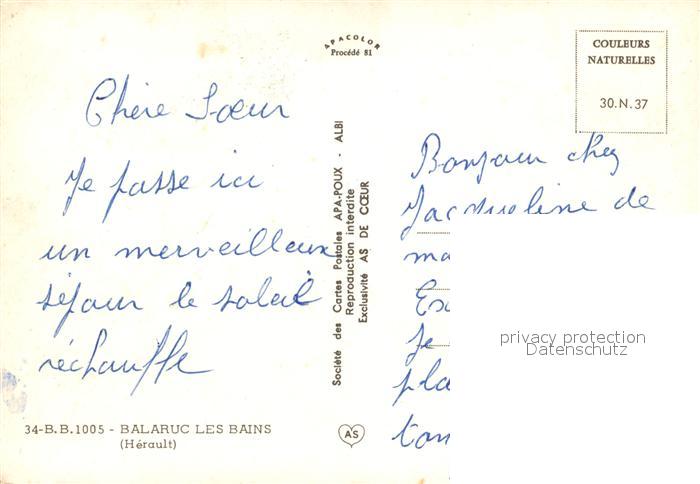 Chère Sœur
Je passe ici
un merveilleux
séjour le soleil
réchauffe
34-B.B.1005 - BALARUC LES BAINS
(Hérault)
APACOLOR
Procédé 81
Société des Cartes Postales APA-POUX - ALBI
Reproduction interdite
Exclusivité AS DE CŒUR
AS
COULEURS
NATURELLES
30.N.37
Bonjour chez
Jacqueline de
ma
Je
pla
privacy protection
Datenschutz